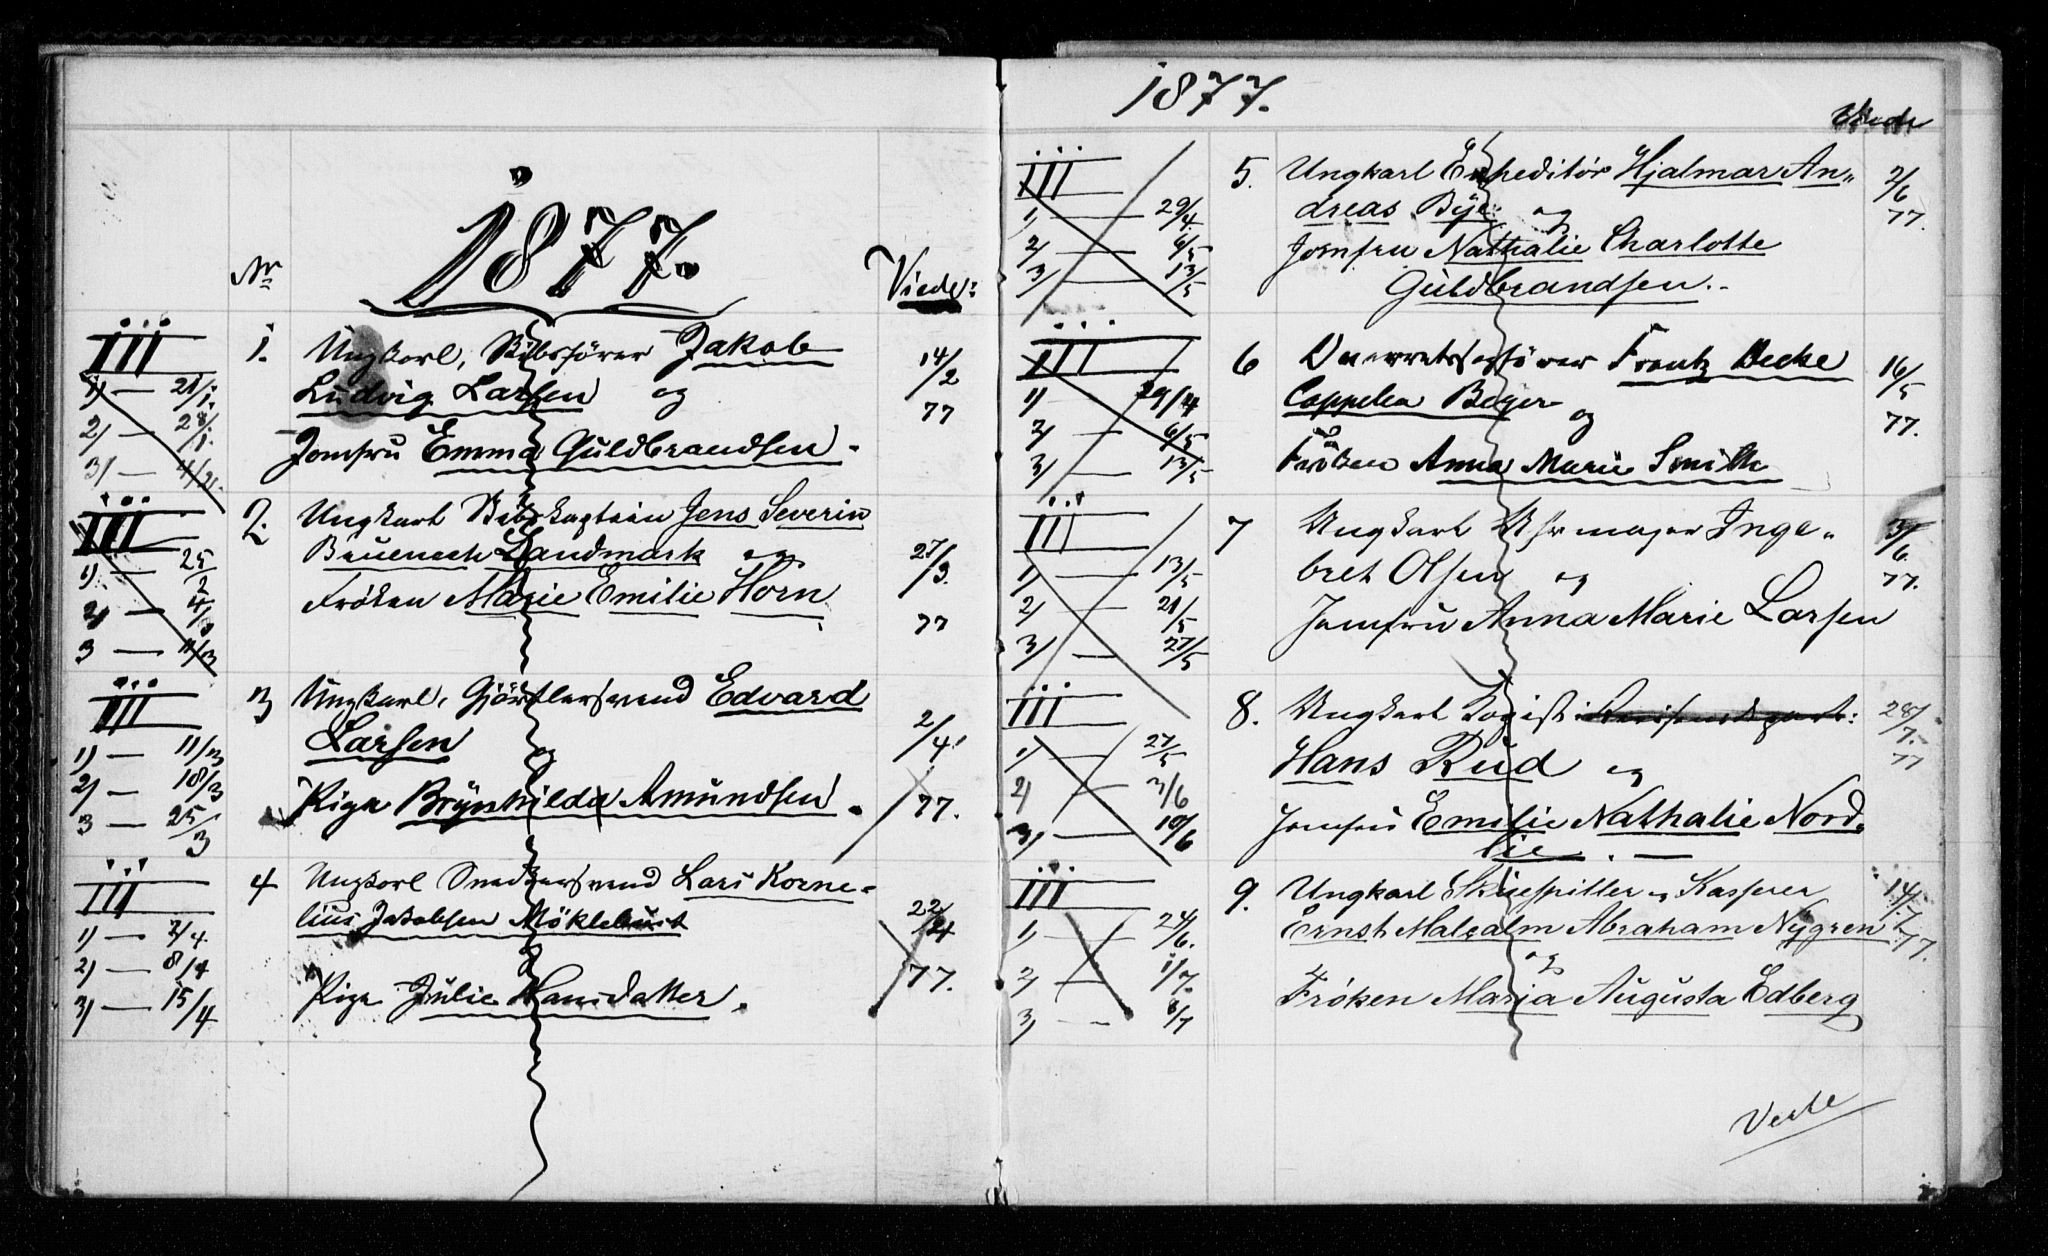 1877.
No
Viede:
III
1) — 21/1.
2) — 28/1.
3) — 4/2.
1. Ungkarl, Skibsfører Jakob
Ludvig Larsen og
Jomfru Emma Guldbrandsen.
14/2
77
III
1) — 25/2
2) — 4/3
3 — 11/3
2. Ungkarl Skibskaptein Jens Severin
Landmark og
Frøken Marie Emilie Horn
27/3.
77
III
1) — 11/3
2) — 18/3
3 — 25/3
3 Ungkarl, Gjørtlersvend Edvard
Larsen og
Pige Brynhilda Amundsen.
2/4
77.
III
1) — 2/4
2) — 8/4
3) — 15/4
4 Ungkarl Snedkersvend Lars Korne-
lius Jakobsen Møklebust
og
Pige Julie Hansdatter.
22/4
77.
1877.
Viede
III
1) — 29/4.
2) — 6/5
3) — 13/5
5. Ungkarl Expeditør Hjalmar An-
dreas Bye og
Jomfru Nathalie Charlotte
Guldbrandsen.
2/6
77.
III
1) — 29/4
2) — 6/5
3) — 13/5
6 Frantz Decke
Cappelen Beyer og
Frøken Anna Marie Smith
16/5
77.
III
1) — 13/5
2) — 21/5
3) — 27/5
7 Ungkarl Uhrmager Inge-
bret Olsen og
Jomfru Anna Marie Larsen
3/6
77.
III
1) — 27/5
2) — 3/6
3) — 10/6
8. Ungkarl Kopist
Hans Rud og
Jomfru Emilie Nathalie Nord-
lie. —
28/7.
77
III
1) — 24/6.
2) — 1/7.
3) — 8/7
9. Ungkarl Skuespiller og Kasserer
Ernst Malcalm Abraham Nygren
og
Frøken Maria Augusta Edberg
14/7
77.
Verte